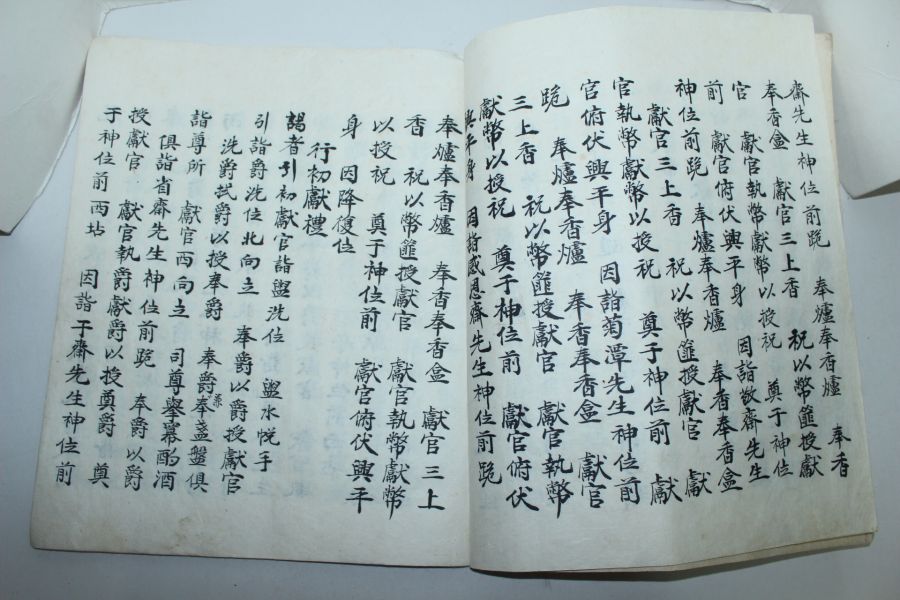 齋先生神位前跪 奉爐奉香爐 奉香
奉香盒 獻官三上香 祝以幣篚授獻
官 獻官執幣獻幣以授祝 奠于神位
前 獻官俯伏興平身 因詣敬齋先生
神位前跪 奉爐奉香爐 奉香奉香盒
獻官三上香 祝以幣篚授獻官 獻
官執幣獻幣以授祝 奠于神位前 獻
官俯伏興平身 因詣菊潭先生神位前
跪 奉爐奉香爐 奉香奉香盒 獻官
三上香 祝以幣篚授獻官 獻官執幣
獻幣以授祝 奠于神位前 獻官俯伏
興平身 因詣感恩齋先生神位前跪
奉爐奉香爐 奉香奉香盒 獻官三上
香 祝以幣篚授獻官 獻官執幣獻幣
以授祝 奠于神位前 獻官俯伏興平
身 因降復位
行初獻禮
謁者引初獻官詣盥洗位 盥水帨手
引詣爵洗位北向立 奉爵以爵授獻官
洗爵拭爵以授奉爵 奉爵奉盞盤俱
詣尊所 獻官西向立 司尊擧冪酌酒
俱詣省齋先生神位前跪 奉爵以爵
授獻官 獻官執爵獻爵以授奠爵 奠
于神位前西坫 因詣于齋先生神位前